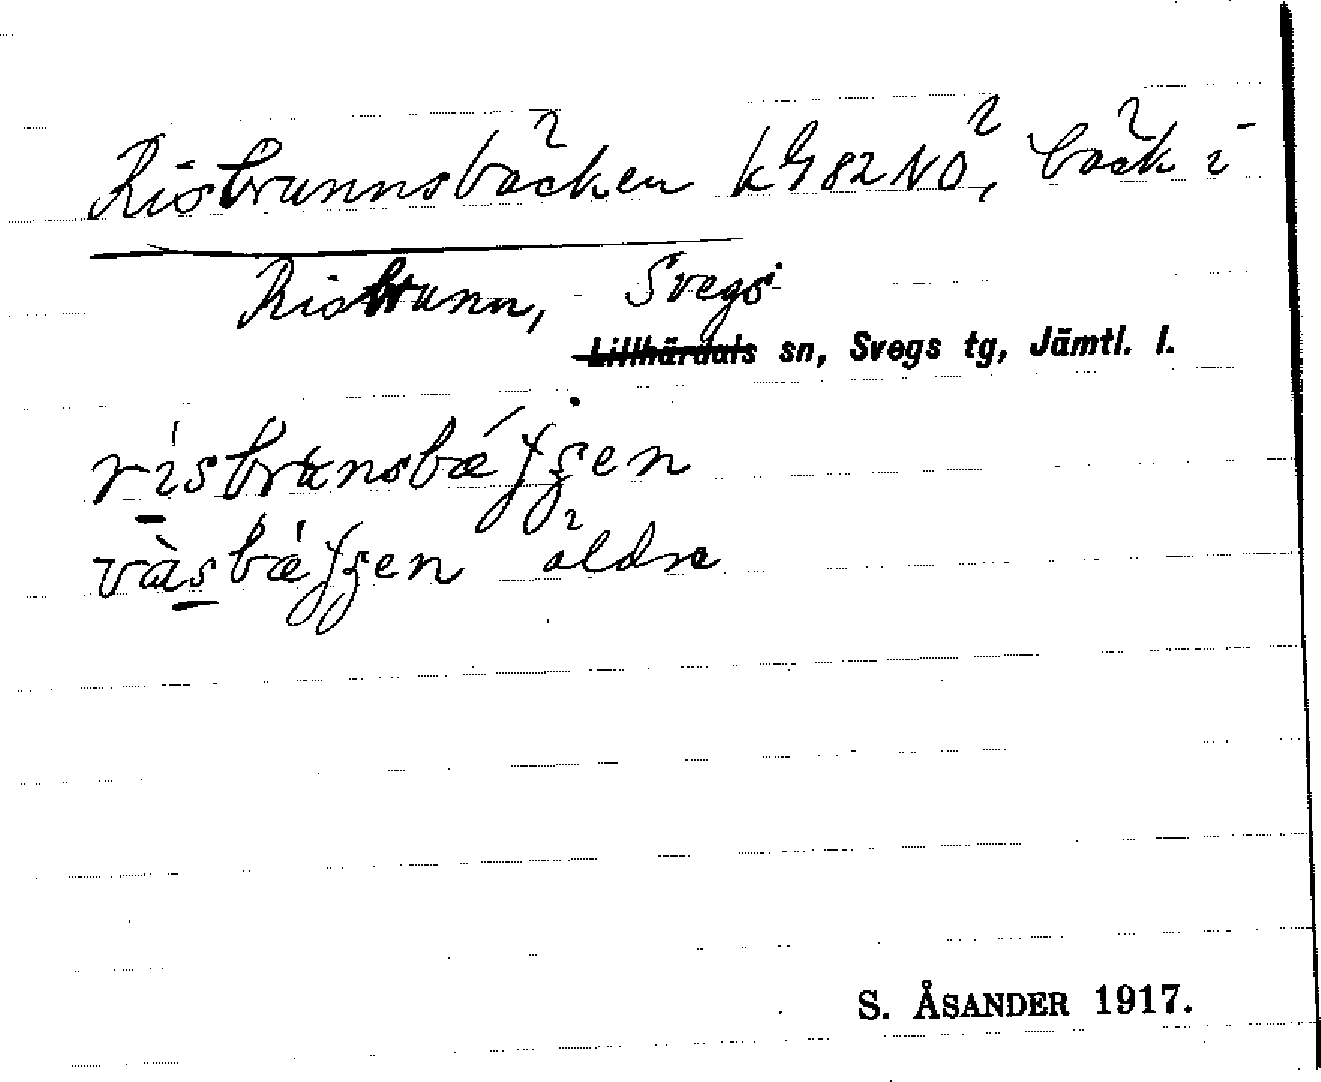 Risbrunnsbäcken kG82NO, bäck i
Risbrunn, Svegs
Lillhärdals sn, Svegs tg, Jämtl. l.
risbrunsbæ
äldre
S. ÅSANDER 1917.